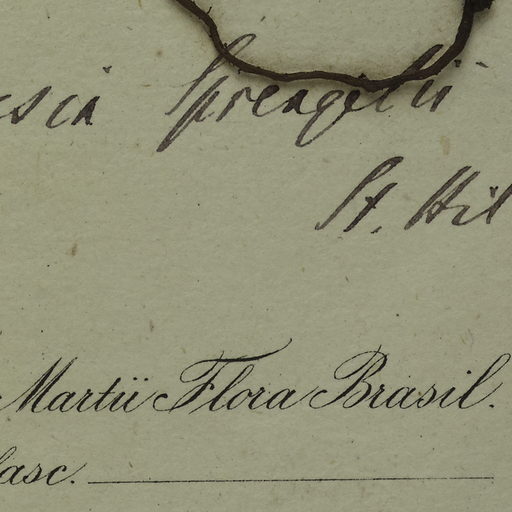 Sprengelii
St. Hil
Martii Flora Brasil.
fasc.